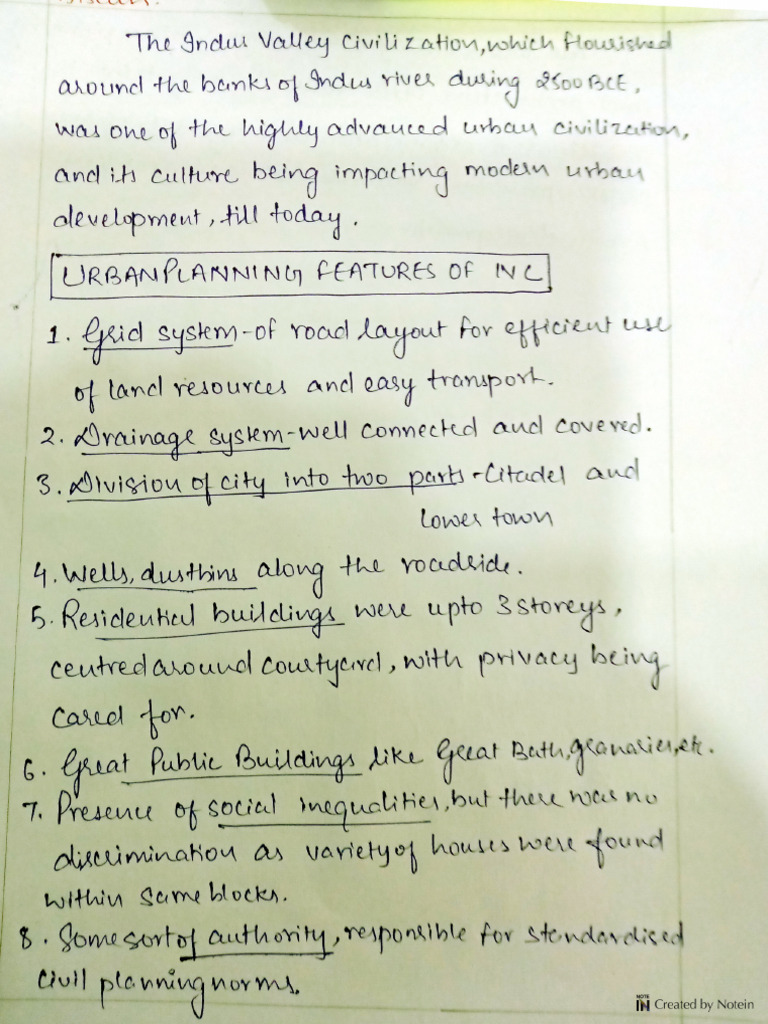 The Indus Valley Civilization, which flourished
around the banks of Indus river during 2500 BCE,
was one of the highly advanced urban civilization,
and its culture being impacting modern urban
development, till today.
URBAN PLANNING FEATURES OF IVC
1. Grid system - of road layout for efficient use
of land resources and easy transport.
2. Drainage system - well connected and covered.
3. Division of city into two parts - Citadel and
lower town
4. Wells, dustbins along the roadside.
5. Residential buildings were upto 3 storeys,
centred around courtyard, with privacy being
cared for.
6. Great Public Buildings like Great Bath, granaries, etc.
7. Presence of social inequalities, but there was no
discrimination as variety of houses were found
within same blocks.
8. Some sort of authority, responsible for standardised
civil planning norms.
NOTE IN Created by Notein